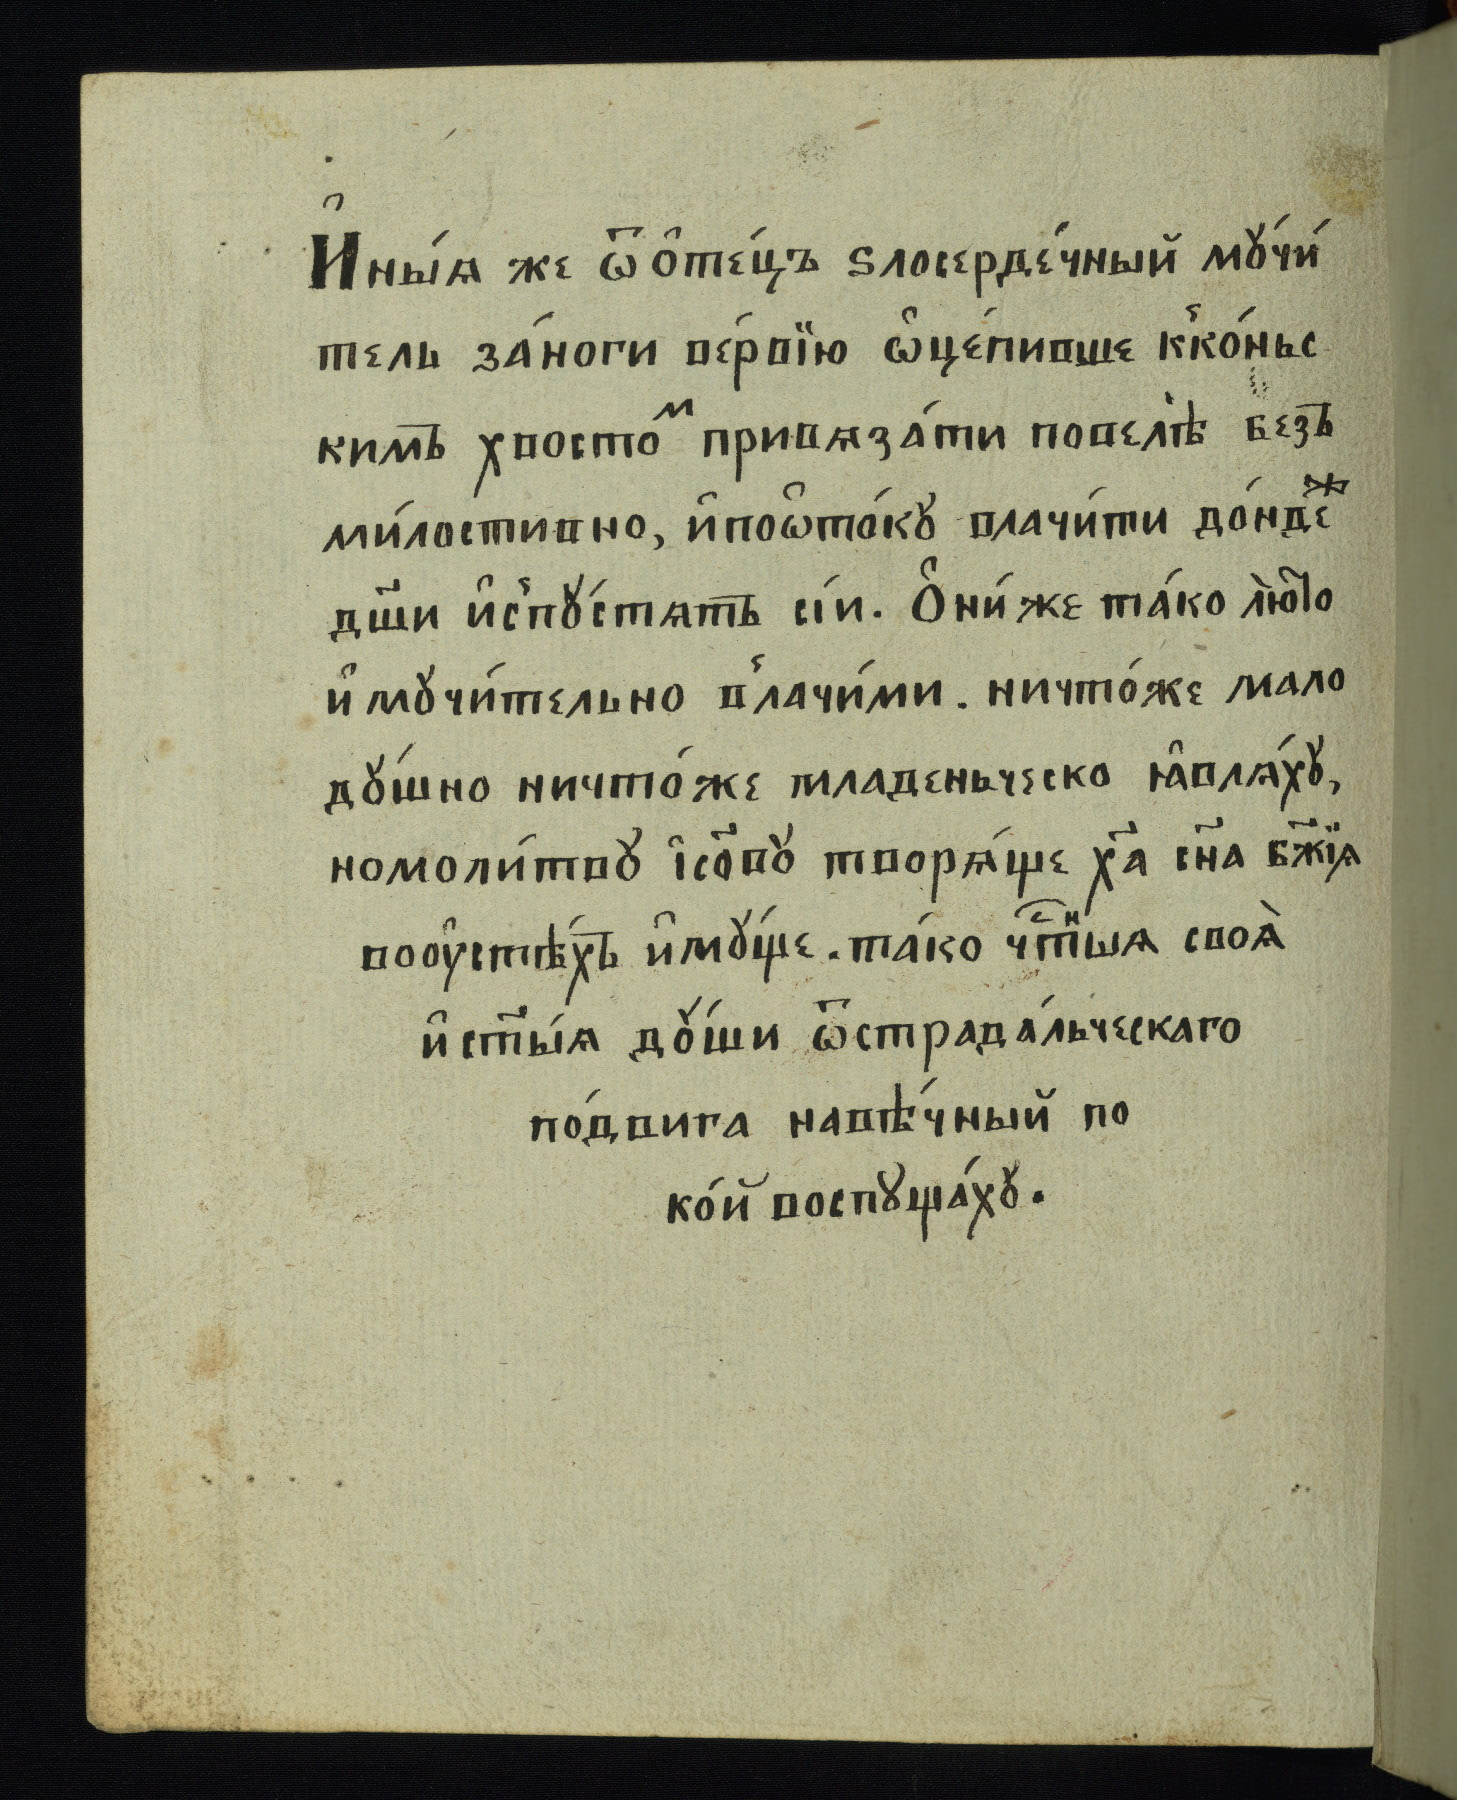 И҆ны́ѧ же ѿ о҆те́цъ ѕлосерде́чный мꙋ́чи́
тель за́ноги ве́рвїю ѡ҆це́пивше кко́ньс
кимъ хвостоⷨ привѧза́ти повелѣ̀ безъ
ми́лостивно, и҆поѡ҆то́кꙋ влачи́ти до́ндеⷤ
дш҃и и҆спꙋ́стѧтъ сі́и. Ѻ҆ни́же та́ко лю́то
и҆мꙋчи́тельно влачи́ми. ничто́же мало
дꙋ́шно ничто́же младеньческо ꙗ҆влѧ́хꙋ,
номоли́твꙋ і҆со҃вꙋ творѧ́ще ха҃ сн҃а бж҃їѧ
вооу҆стѣ́хъ и҆мꙋ́ще. та́ко чⷭ҇тнⷩыѧ своѧ̀
и҆ ст҃ы́ѧ дꙋ́ши ѿстрада́льческаго
по́двига навѣ́чный по
ко́й воспꙋща́хꙋ.